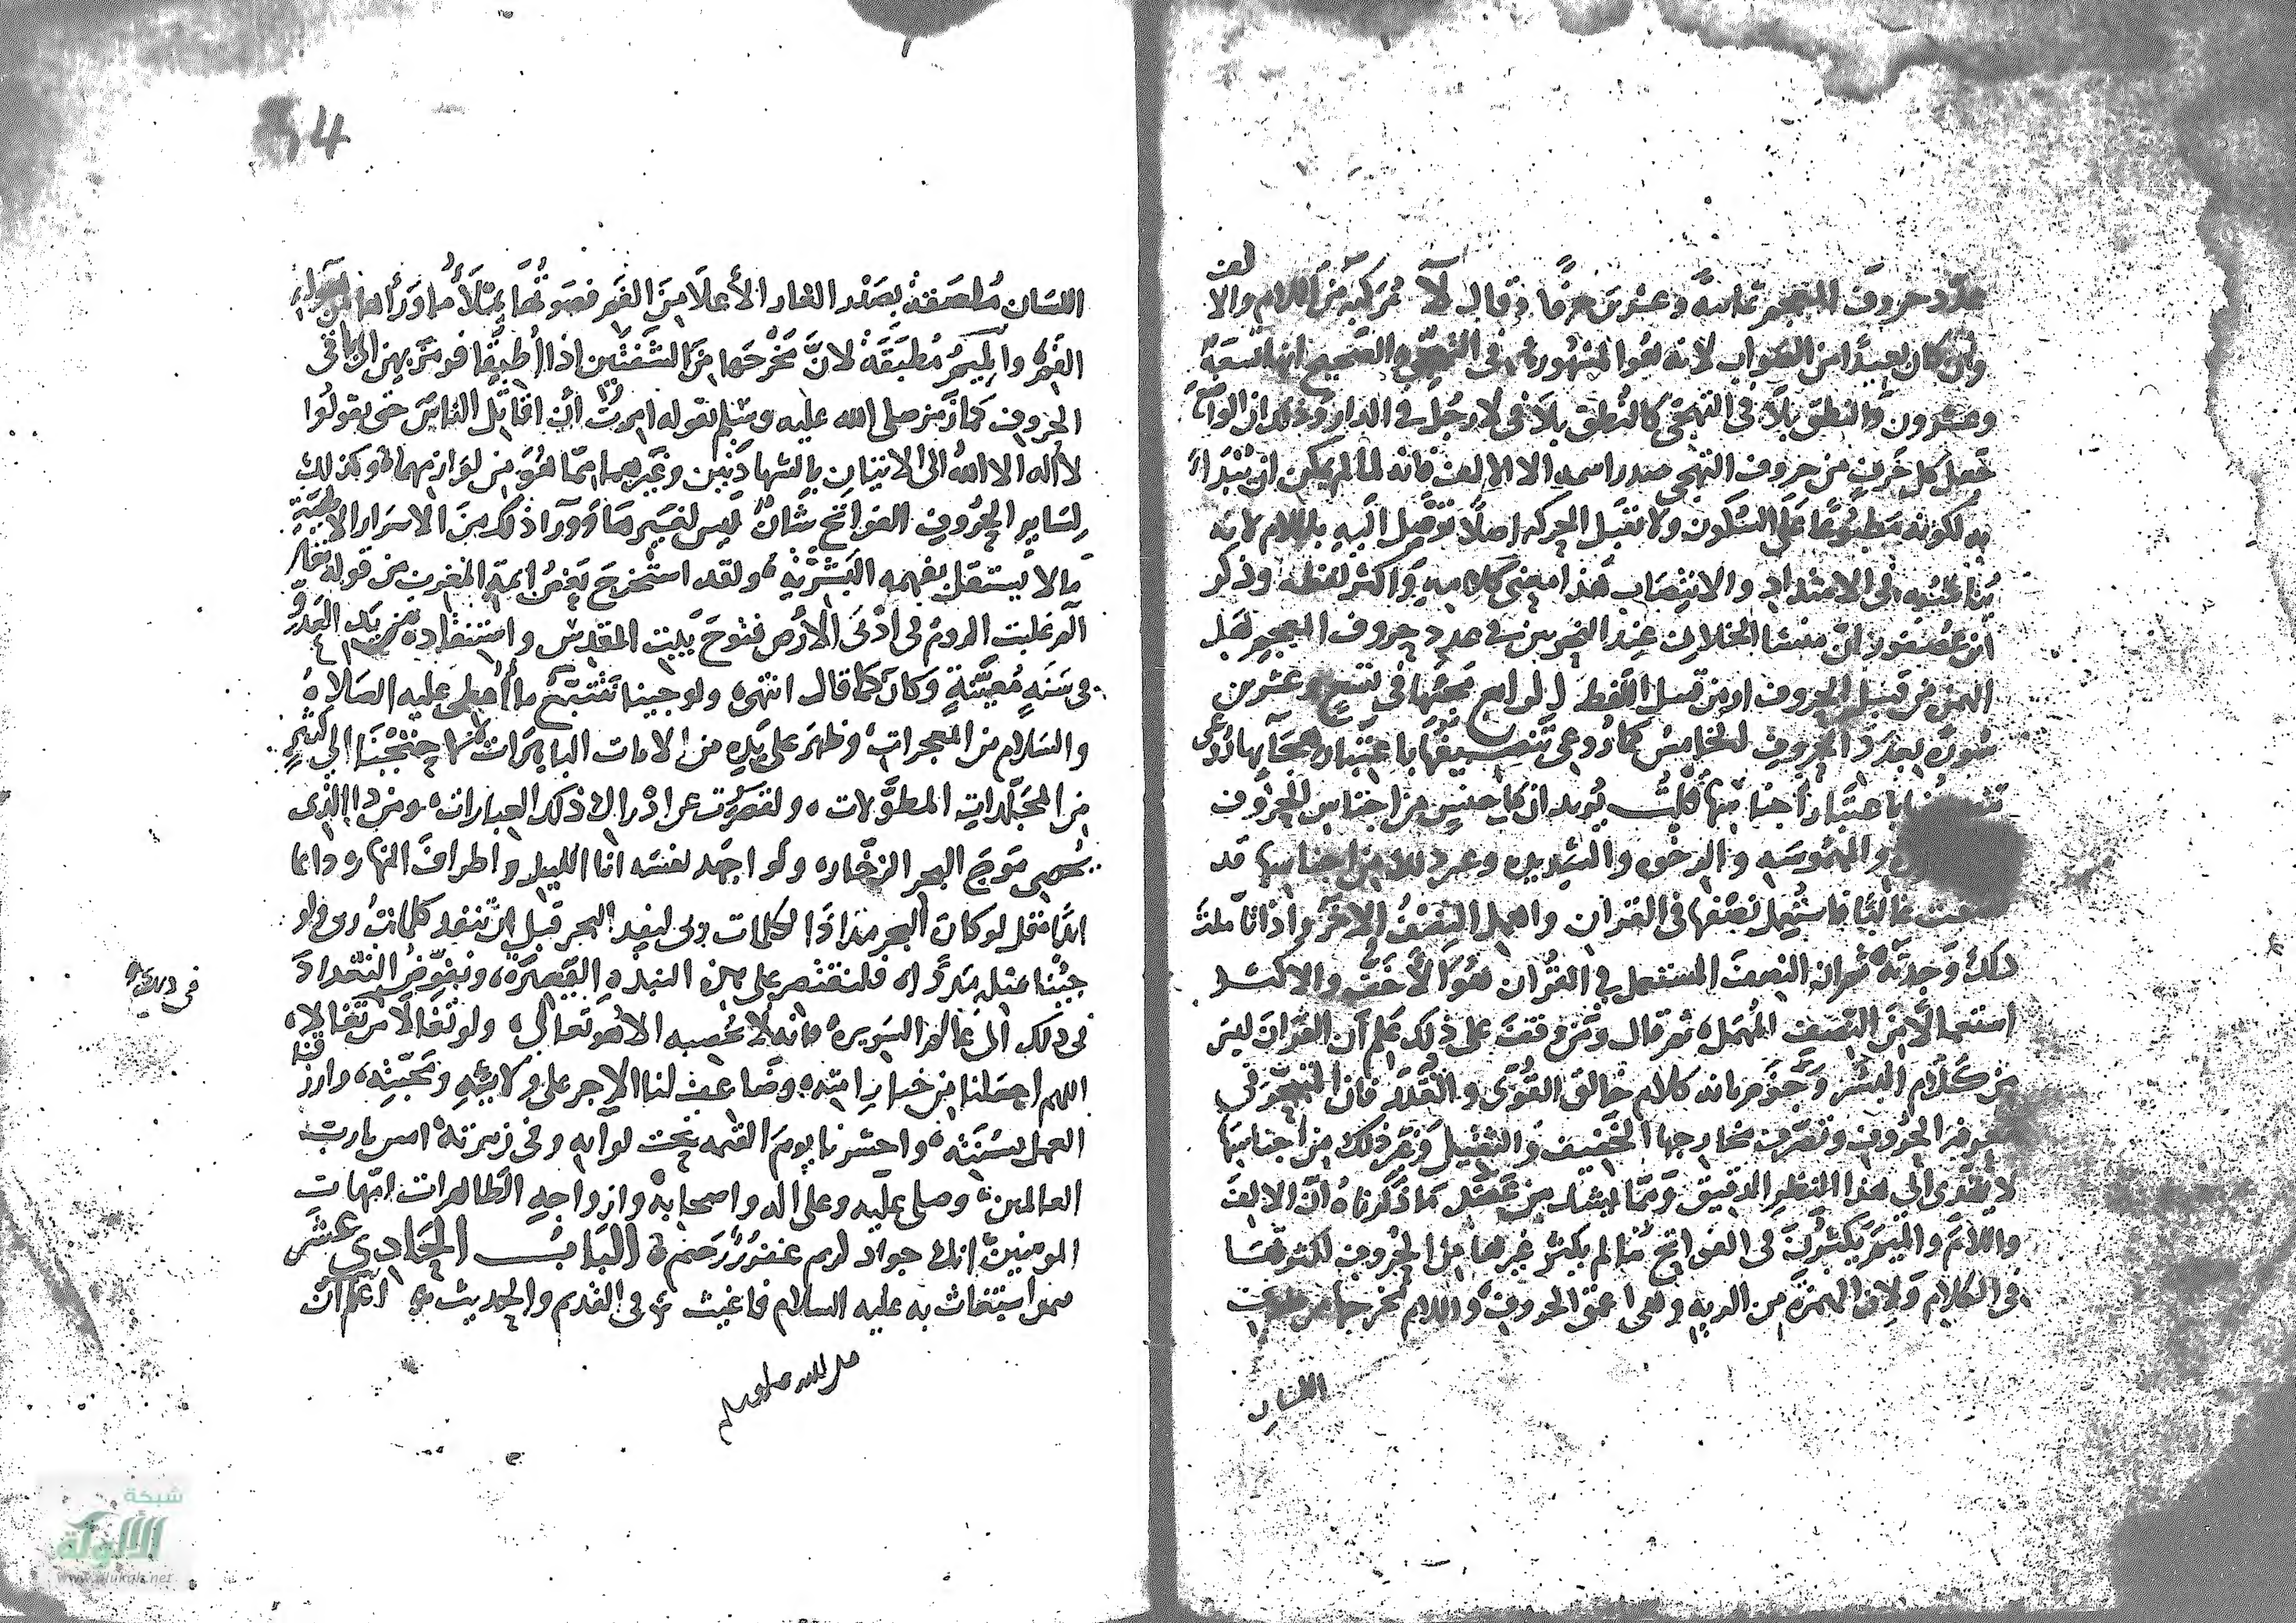 عدد حروف المعجم ثمانية وعشرين حرفا وقال لآ مركبة من اللام والا
لف
وان كان بعيدا من الصواب لانه هو المشهورة في التهجي والصحيح انها تسعة
وعشرون والنطق بلا في التهجي كالنطق بلا في لا رجل في الدار وذلك ان الواضع
جعل كل حرف من حروف التهجي صدر اسمه الا الالف فانه لما لم يمكن ان يبتدا
به لكونه مطبوعا على السكون ولا تقبل الحركة اصلا توصل اليه باللام لانه
في الامتداد والانتصاب هذا معنى كلامه واكثر لفظه وذكر
ابن عصفور ان منشا الخلاف عند النحويين في عدد حروف المعجم هل
الهمز من قبيل الحروف او من قبيل النقط الرابع مجيها في تسع وعشرين
سورة بعدد الحروف الخامس كما روعي تنصيفها باعتبار هجآيها روعي
باعتبار اجناسها قلت يريد ان كل جنس من اجناس الحروف
والمهموسه والرخوه والشديده وغير ذلك من اجناسها قد
غالبا فاستعمل نصفها في القران واهمل النصف الاخر واذا تاملت
ذلك وجدته ثم ان النصف المستعمل في القران هو الاخف والاكثر
استعمالا من النصف المهمل ثم قال ومن وقف على ذلك علم ان القران ليس
من كلام البشر وجزم بانه كلام خالق القوى والقدر فان المتبحر في
الحروف وتعرف مخارجها الخفيف والثقيل وغير ذلك من اجناسها
لا يهتدى الى هذا النظر الدقيق ومما ينشا من كما ذكرناه ان الالف
واللام والميم يكثرن في الفواتح ما لم يكثر غيرها من الحروف لكثرتها
في الكلام ولان الهمزة من الرية وهي اعمق الحروف واللام مخرجها من طرف
اللسان
اللسان ملصقة بصدر الغار الأعلا من الفم فصوتها يملأ ما ورأها من هواء
الفم والميم مطبقة لان مخرجها من الشفتين اذا أطبقا فرمز بهن الى باقى
الحروف كما رمز صلى الله عليه وسلم بقوله امرت أن اقاتل الناس حتى يقولوا
لا اله الا الله الى الاتيان بالشهادتين وغيرهما مما هو من لوازمهما وكذلك
لساير الحروف الفواتح شأن ليس لغيرها وورآ ذلك من الاسرار الالهية
ما لا يستقل بفهمه البشرية ولقد استخرج بعض ايمة المغرب من قوله تعالى
آلم غلبت الروم في ادنى الأرض فتوح بيت المقدس واستنقاذه من يد العدو
في سنة معينة وكان كما قال انتهى ولو جينا نتتبع ما أعطى عليه الصلاة
والسلام من المعجرات وظهر على يده من الايات الباهرات لاحتجنا الى كثير
من المجلدات المطولات ولقصرت عن ادراك ذلك العبارات ومن ذا الذى
يحصى موج البحر الزخار ولو اجهد نفسه انا الليل واطراف النهار دائما
ابدا فقل لو كان البحر مدادا لكلمات ربى لنفد البحر قبل ان تنفد كلمات ربى ولو
جئنا بمثله مددا فلنقتصر على هذه النبذه القصيره ونفوض التعداد
فى ذلك الى عالم السريره فانه لا يحصيه الا هو تعالى ولو تغالا من تغالا
اللهم اجعلنا من خيار امته وضاعف لنا الاجر على ولايته ومحبته وارزقنا
العمل بسنته واحشرنا يوم القيمه تحت لوايه وفي زمرته امين يارب
العالمين وصلى عليه وعلى اله واصحابه وازواجه الطاهرات امهات
المومنين انك جواد كريم غفور رحيم الباب الحادي عشر
فيمن استغاث به عليه السلام فاغيث في القديم والحديث اعلم ان
شبكة
الألوكة
www.alukah.net